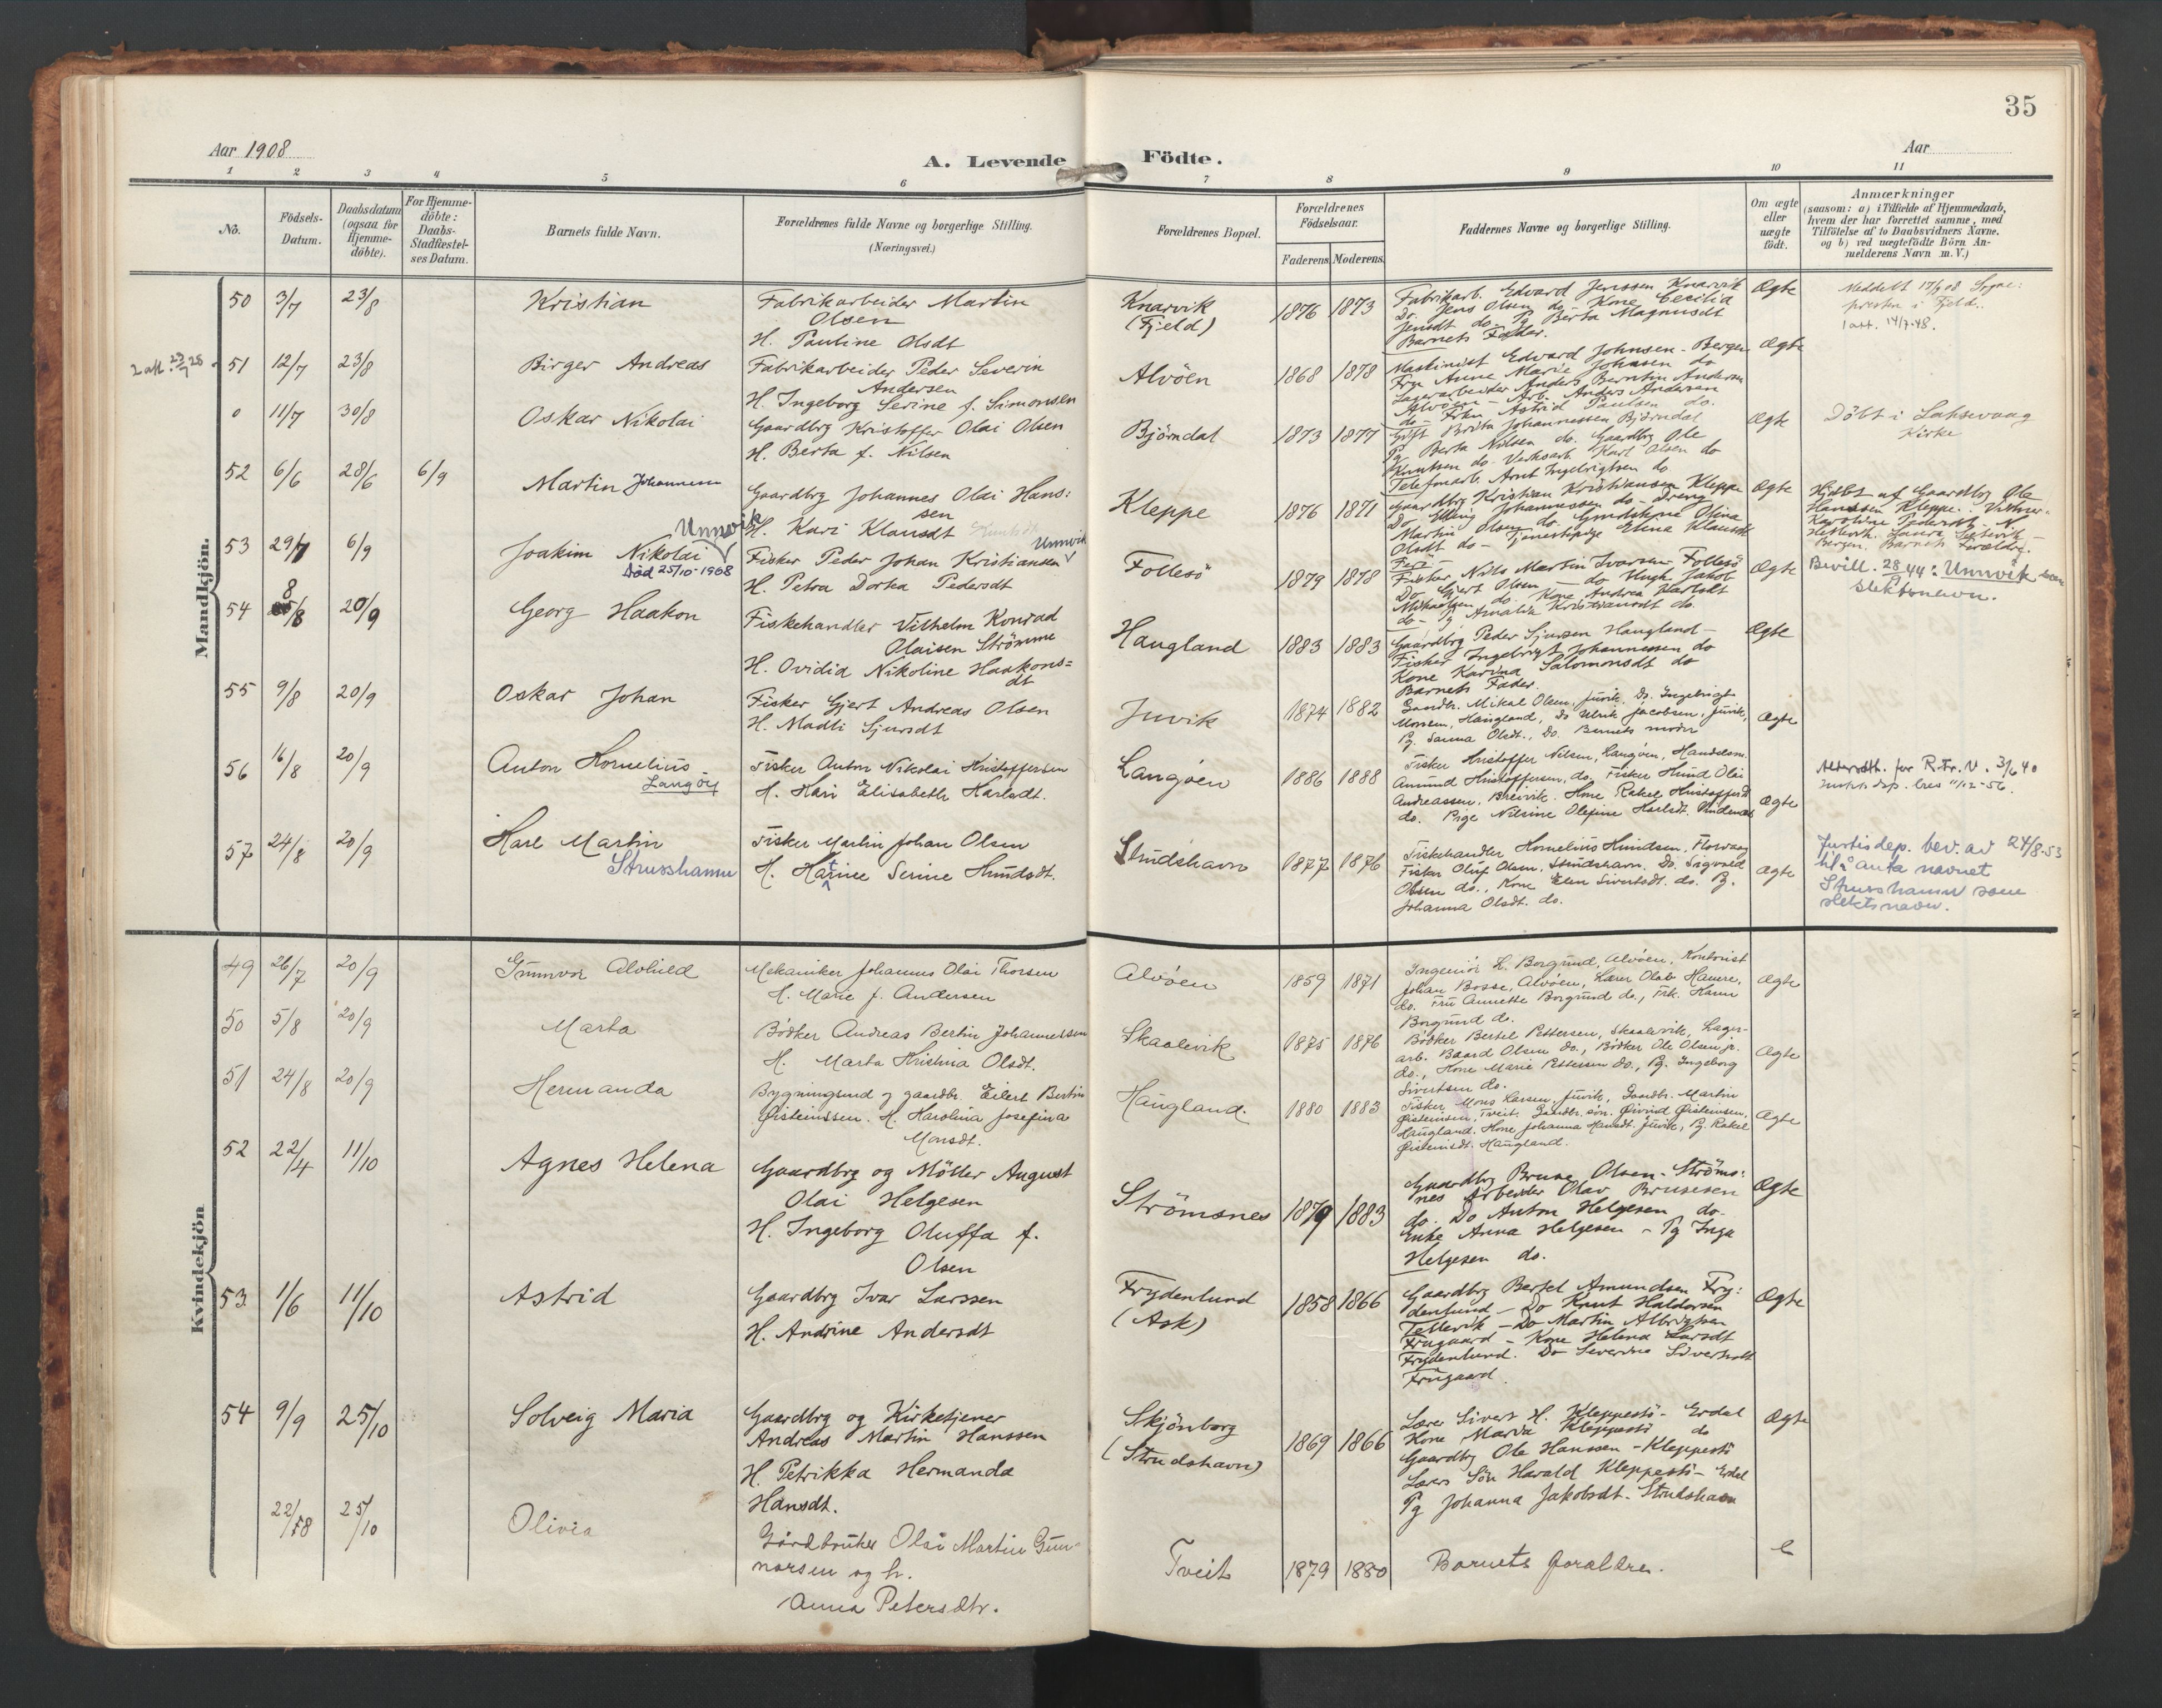 35
Aar 1908
A. Levende Födte.
Aar
1 2 3 4 5 6 7 8 9 10 11
No.
Födsels-Datum.
Daabsdatum (ogsaa for Hjemme-döbte).
For Hjemme-döbte: Daabs-Stadfæstel-ses Datum.
Barnets fulde Navn.
Forældrenes fulde Navne og borgerlige Stilling. (Næringsvei.)
Forældrenes Bopæl.
Forældrenes Födselsaar.
Faderens. Moderens.
Faddernes Navne og borgerlige Stilling.
Om ægte eller uægte födt.
Anmærkninger
(saasom: a) i Tilfælde af Hjemmedaab,
hvem der har forrettet samme, med
Tilföielse af to Daabsvidners Navne.
og b) ved uægtefödte Börn An-
melderens Navn m. V.)
Mandkjön.
50 3/7 23/8 Kristian
Fabrikarbeider Martin
Olsen
H. Pauline Olsdt
Knarvik
(Fjeld)
1876 1873
Fabrikarb. Edvard Jenssen Knarvik
Do. Jens Olsen do. Kone Cecilia
Jensdt do. Pg Berta Magnusdt
Barnets Fader.
Ægte
51 12/7 23/8 Birger Andreas
Fabrikarbeider Peder Severin
Andersen
H. Ingeborg Serine f. Simonsen
Alvöen
1868 1878
Maskinist Edvard Johnsen - Bergen
Fru Anne Marie Johnsen do
Lagerarbeider Anders Berntin Andersen
Alvöen - Arb. Anders Andersen
do - Frkn Astrid Paulsen do.
Ægte
0 11/7 30/8 Oskar Nikolai
Gaardbrg Kristoffer Olai Olsen
H. Berta f. Nilsen
Bjørndal
1873 1877
Gift Brita Johannessen Bjørndal
Pg Berta Nilsen do. Gaardbrg Ole
Knutsen do. Verksarb. Karl Olsen do
Telefonarb. Arnt Ingebrigtsen do
Ægte
Döbt i Laksevaag
Kirke
52 6/6 28/6 6/9 Martin Johannes
Gaardbrg Johannes Olai Hans:
sen
H. Kari Klausdt
Kleppe
1876 1871
Gaardbrg Kristian Kristiansen Kleppe
Do Elling Johannessen do - Dreng
Martin Olsen do. Gmlkone Olina
Olsdt do - Tjenestepige Elina Klausdt
Ægte
Hjdbt af Gaardbrg Ole
Hanssen Kleppe. Vidner:
Karoline Pedersdt
Barnets Forældre.
53 29/7 6/9 Joakim Nikolai Unnvik
död 25/10-1968
Fisker Peder Johan Kristiansen Unnvik
H. Petra Dortea Pedersdt
Follesö
1879 1878
Fisker Nils Martin Ivarsen Follesö
Do Gjert Olsen - do Ungk. Jakob
Mikaelsen do. Kone Andrea Karlsdt
do - Pg Amalia Kristiansdt do.
Ægte
Bevill. 28/9 44: Unnvik som
slektsnavn.
54 8/8 20/9 Georg Haakon
Fiskehandler Vilhelm Konrad
Olaisen Strömme
H. Ovidia Nikoline Haakons=
dt
Haugland
1883 1883
Gaardbrg Peder Sjursen Haugland -
Fisker Ingebrigt Johannessen do
Kone Karina Salomonsdt do
Barnets Fader.
Ægte
55 9/8 20/9 Oskar Johan
Fisker Gjert Andreas Olsen
H. Madli Sjursdt
Juvik
1874 1882
Gaardbr. Mikal Olsen, Juvik, Do. Ingebrigt
Monsen, Haugland, do Ulrik Jacobsen, Juvik,
Pg. Sanna Olsdt., Do. Barnets moder
Ægte
56 16/8 20/9 Anton Kornelius
Langöy
Fisker Anton Nikolai Kristoffersen
H. Kari Elisabeth Karlsdt.
Langöen
1886 1888
Fisker Kristoffer Nilsen, Langöen, Handelsm.
Amund Kristoffersen, do, Fisker Knud Olai
Andreassen, Breivik. Kone Rakel Kristoffersdt
do. Pige Nilsine Olefine Karlsdt.
Ægte
57 24/8 20/9 Karl Martin
Strusshamn
Fisker Martin Johan Olsen
H. Katrine Serine Knudsdt.
Strudshavn
1877 1876
Fiskehandler Kornelius Knudsen, Florvaag
Fisker Oluf Olsen, Strudshavn, Do. Sigvald
Olsen do., Kone Elen Sivertsdt. do. Pg.
Johanna Olsdt. do.
Ægte
Justisdep. bev. av 24/8-53
til å anta navnet
Strusshamn som
slektsnavn.
Kvindekjön
49 26/7 20/9 Gunnvor Alvhild
Mekaniker Johannes Olai Thorsen
H. Marie f. Andersen
Alvöen
1859 1871
Ingeniör L. Borgund, Alvöen, Kontorist
Johan Bosse, Alvöen, Lærer Olab Hamre,
do. Fru Annette Borgund do., Frk. Hanna
Borgund do.
Ægte
50 5/8 20/9 Marta
Bödker Andreas Bertin Johannessen
H. Marta Kristina Olsdt.
Skaalevik
1875 1876
Bödker Bertel Pettersen, Skaalevik, Lager-
arb. Baard Olsen do., Bödker Ole Olsen jr.
do., Kone Marie Pettersen do., Pg. Ingeborg
Sivertsen do.
Ægte
51 24/8 20/9 Hermanda
Bygningsmd og gaardbr. Eilert Bertin
Øisteinssen. H. Karolina Josefina
Monsdt.
Haugland.
1880 1883
Fisker Mons Larsen, Juvik, Gaardbr. Martin
Øisteinsen, Tveit. Gaardbr. søn. Øivind Øisteinsen,
Haugland. Kone Johanna Hansdt. Juvik, Pg. Rakel
Øisteinsdt. Haugland.
Ægte
52 22/4 11/10 Agnes Helena
Gaardbrg og Möller August
Olai Helgesen
H. Ingeborg Oluffa f.
Olsen
Strömsnes
1879 1883
Gaardbrg Bruse Olsen - Ströms:
nes Arbeider Olav Brusesen
do. Do Anton Helgesen do-
Enke Anna Helgesen - Pg Inga
Helgesen do.
Ægte
53 1/6 11/10 Astrid
Gaardbrg Ivar Larssen
H. Andrine Andersdt
Frydenlund
(Ask)
1858 1866
Gaardbrg Bertel Amundsen Fry:
denlund - Do Knut Haldorsen
Tellevik - Do Martin Albrigtsen
Frugaard - Kone Helena Larsdt
Frydenlund. Do Severine Sivertsdt
Frugaard.
Ægte
54 9/9 25/10 Solveig Maria
Gaardbrg og Kirketjener
Andreas Martin Hanssen
H. Petrikka Hermanda
Hansdt.
Skjönborg
(Strudshavn)
1869 1866
Lærer Sivert H. Kleppestö - Erdal
Kone Marda Kleppestö do
Gaardbrg Ole Hanssen - Kleppestö
Lærers Sön Harald Kleppestö - Erdal
Pg Johanna Jakobsdt. Strudshavn
Ægte
22/8 25/10 Olivia
Gårdbruker Olai Martin Gun-
narsen og h.
Anna Petersdtr.
Tveit
1879 1880
Barnets foraldre.
e